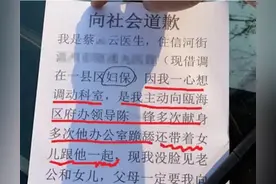 向社会道歉
我是蔡 云医生,住信河街
(现借调
在一县区妇保)因我一心想
调动科室,是我主动向瓯海
区府办领导陈 锋多次献身
多次他办公室跪舔还带着女
儿跟他一起 现我没脸见老
公和女儿,父母一定要我向